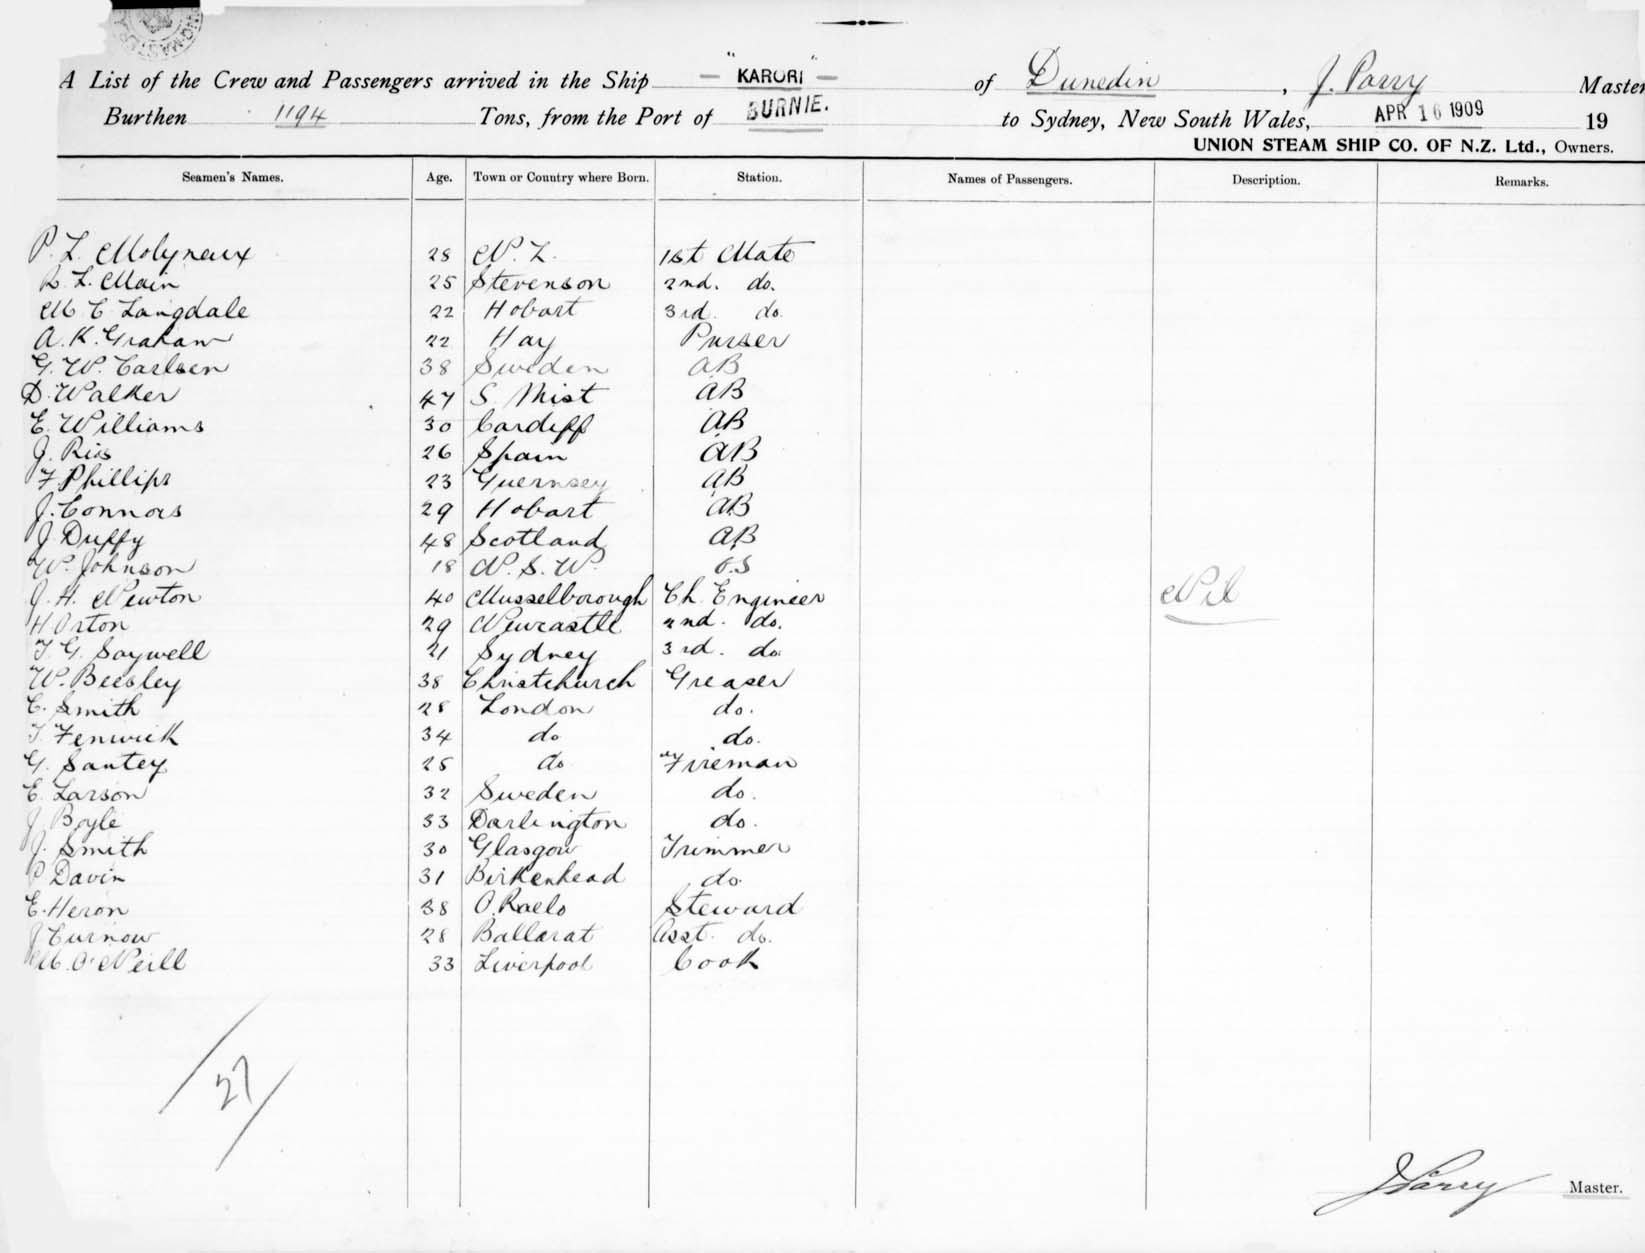 A List of the Crew and Passengers arrived in the Ship "KARORI" of Dunedin, J. Parry Master
Burthen 1194 Tons, from the Port of BURNIE. to Sydney, New South Wales, APR 16 1909 19
UNION STEAM SHIP CO. OF N.Z. Ltd., Owners.
Seamen's Names. Age. Town or Country where Born. Station. Names of Passengers. Description. Remarks.
P. L. Molyneaux 28 N. Z. 1st Mate
R. L. Main 25 Stevenson 2nd. do.
M C Langdale 22 Hobart 3rd. do.
A. K. Graham 22 Hay Purser
G. W. Carlsen 38 Sweden AB
D. Walker 47 S. Mist AB
E. Williams 30 Cardiff AB
J. Rios 26 Spain AB
F Phillips 23 Guernsey AB
J. Connors 29 Hobart AB
J Duffy 48 Scotland AB
W. Johnson 18 N. S. W. O.S
J. H. Newton 40 Musselborough Ch. Engineer Nil
H Orton 29 Newcastle 2nd. do.
T. G. Saywell 21 Sydney 3rd. do.
W. Beesley 38 Christchurch Greaser
C. Smith 28 London do.
T. Fenwick 34 do do.
G. Santey 25 do Fireman
E. Larson 32 Sweden do.
J Boyle 33 Darlington do.
J. Smith 30 Glasgow Trimmer
P Davin 31 Birkenhead do.
E. Heron 38 Steward
J Curnow 28 Ballarat Asst. do.
M. O'Neill 33 Liverpool Cook
27
J Parry Master.